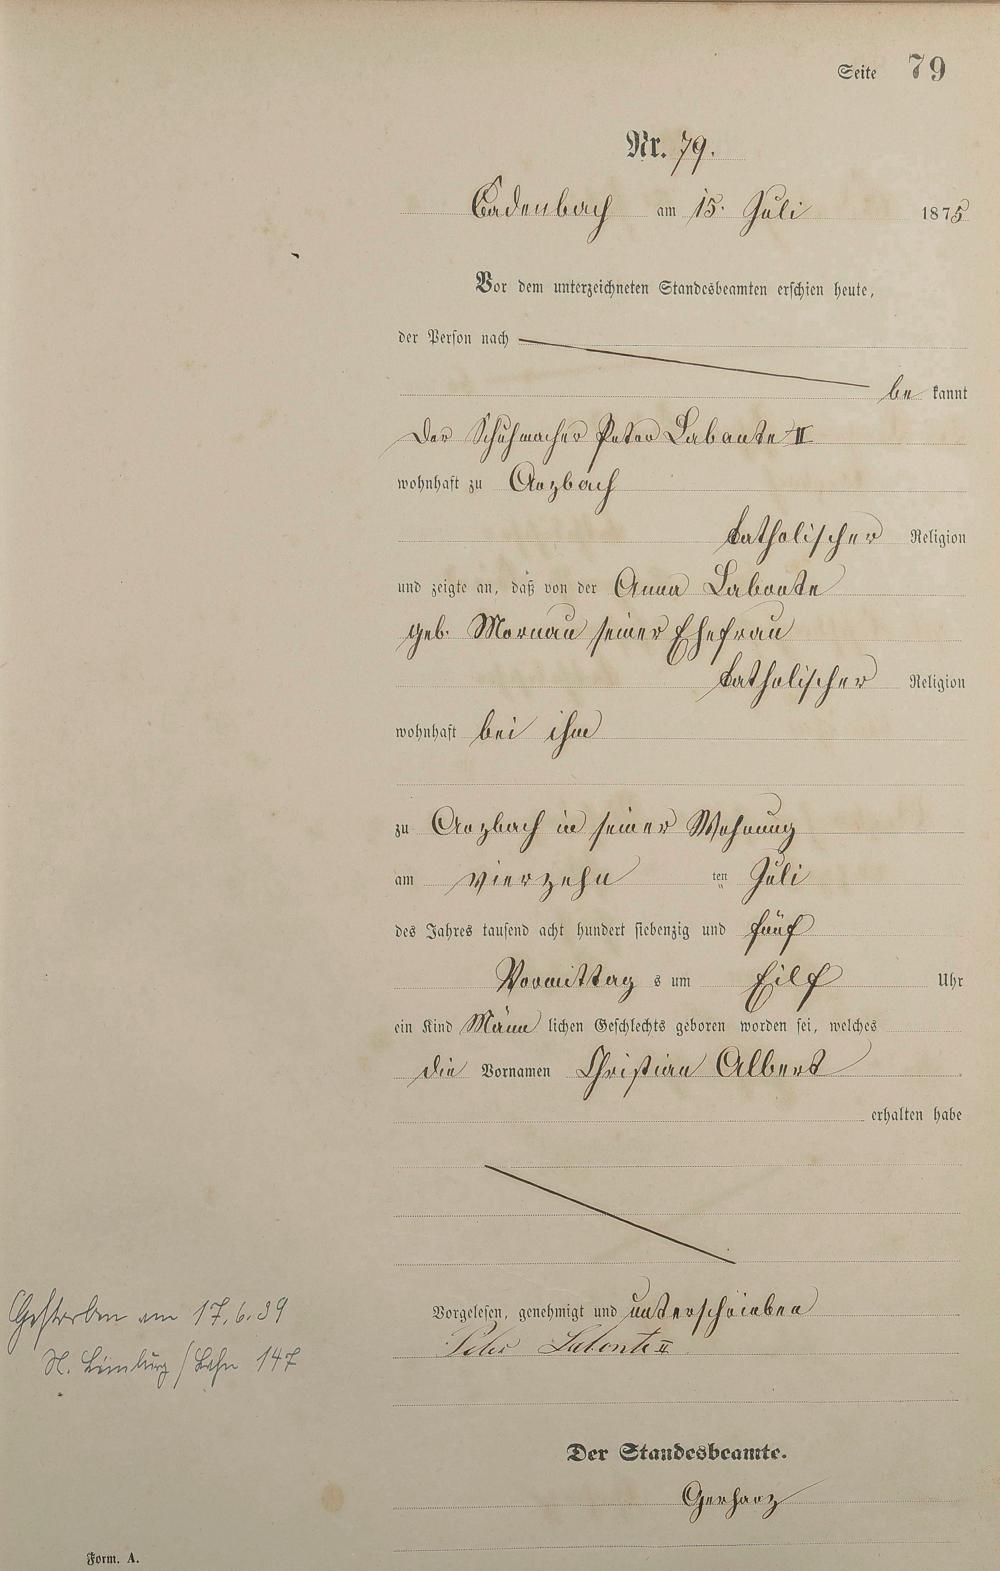 Seite 79
Nr. 79.
Cadenbach am 15. Juli 1875
Vor dem unterzeichneten Standesbeamten erschien heute,
der Person nach
be kannt
Der Schuhmacher Peter Labonte II
wohnhaft zu Arzbach
katholischer Religion
und zeigte an, daß von der Anna Labonte
geb. Mornau seiner Ehefrau
katholischer Religion
wohnhaft bei ihm
zu Arzbach in seiner Wohnung
am vierzehn ten Juli
des Jahres tausend acht hundert siebenzig und fünf
Vormittag s um Eilf Uhr
ein Kind Männ lichen Geschlechts geboren worden sei, welches
die Vornamen Christian Albert
erhalten habe
Vorgelesen, genehmigt und unterschrieben
Peter Labonte II
Gestorben am 17.6.39
St. Limburg/Lahn 147
Der Standesbeamte.
Gerharz
Form. A.